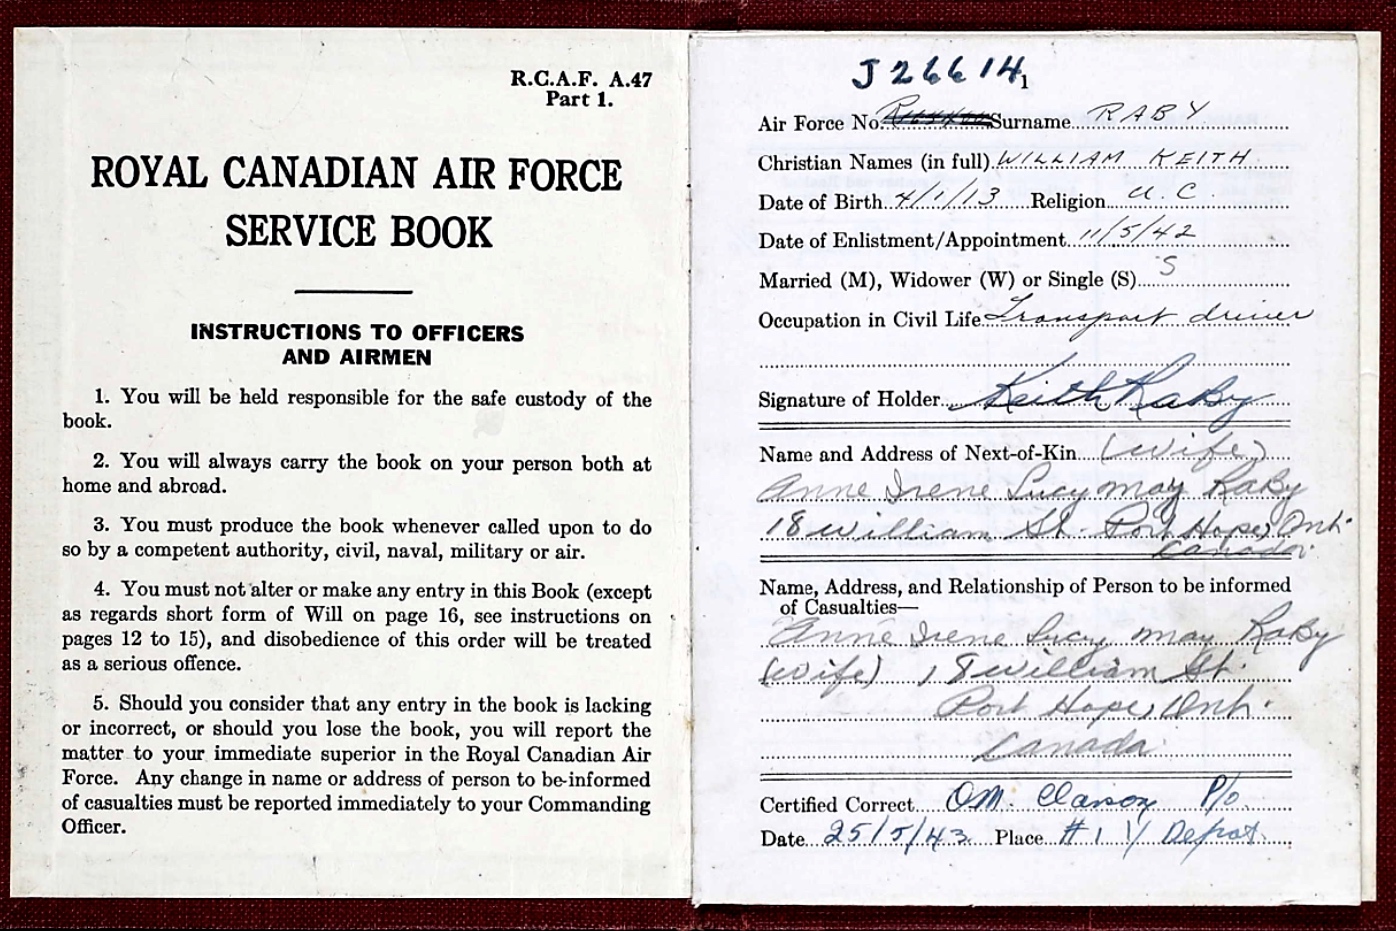 R.C.A.F. A.47
Part 1.
ROYAL CANADIAN AIR FORCE
SERVICE BOOK
INSTRUCTIONS TO OFFICERS
AND AIRMEN
1. You will be held responsible for the safe custody of the
book.
2. You will always carry the book on your person both at
home and abroad.
3. You must produce the book whenever called upon to do
so by a competent authority, civil, naval, military or air.
4. You must not alter or make any entry in this Book (except
as regards short form of Will on page 16, see instructions on
pages 12 to 15), and disobedience of this order will be treated
as a serious offence.
5. Should you consider that any entry in the book is lacking
or incorrect, or should you lose the book, you will report the
matter to your immediate superior in the Royal Canadian Air
Force. Any change in name or address of person to be informed
of casualties must be reported immediately to your Commanding
Officer.
J26614
1
Air Force No. Surname RABY
Christian Names (in full) WILLIAM KEITH
Date of Birth 4/1/13 Religion U.C.
Date of Enlistment/Appointment 11/5/42
Married (M), Widower (W) or Single (S) S
Occupation in Civil Life Transport driver
Signature of Holder Keith Raby
Name and Address of Next-of-Kin (Wife)
Anne Irene Lucy May Raby
18 William St. Port Hope, Ont.
Canada.
Name, Address, and Relationship of Person to be informed
of Casualties—
Anne Irene Lucy May Raby
(Wife) 18 William St.
Port Hope, Ont.
Canada.
Certified Correct OM. P/O
Date 25/5/43 Place #1 Y Depot.